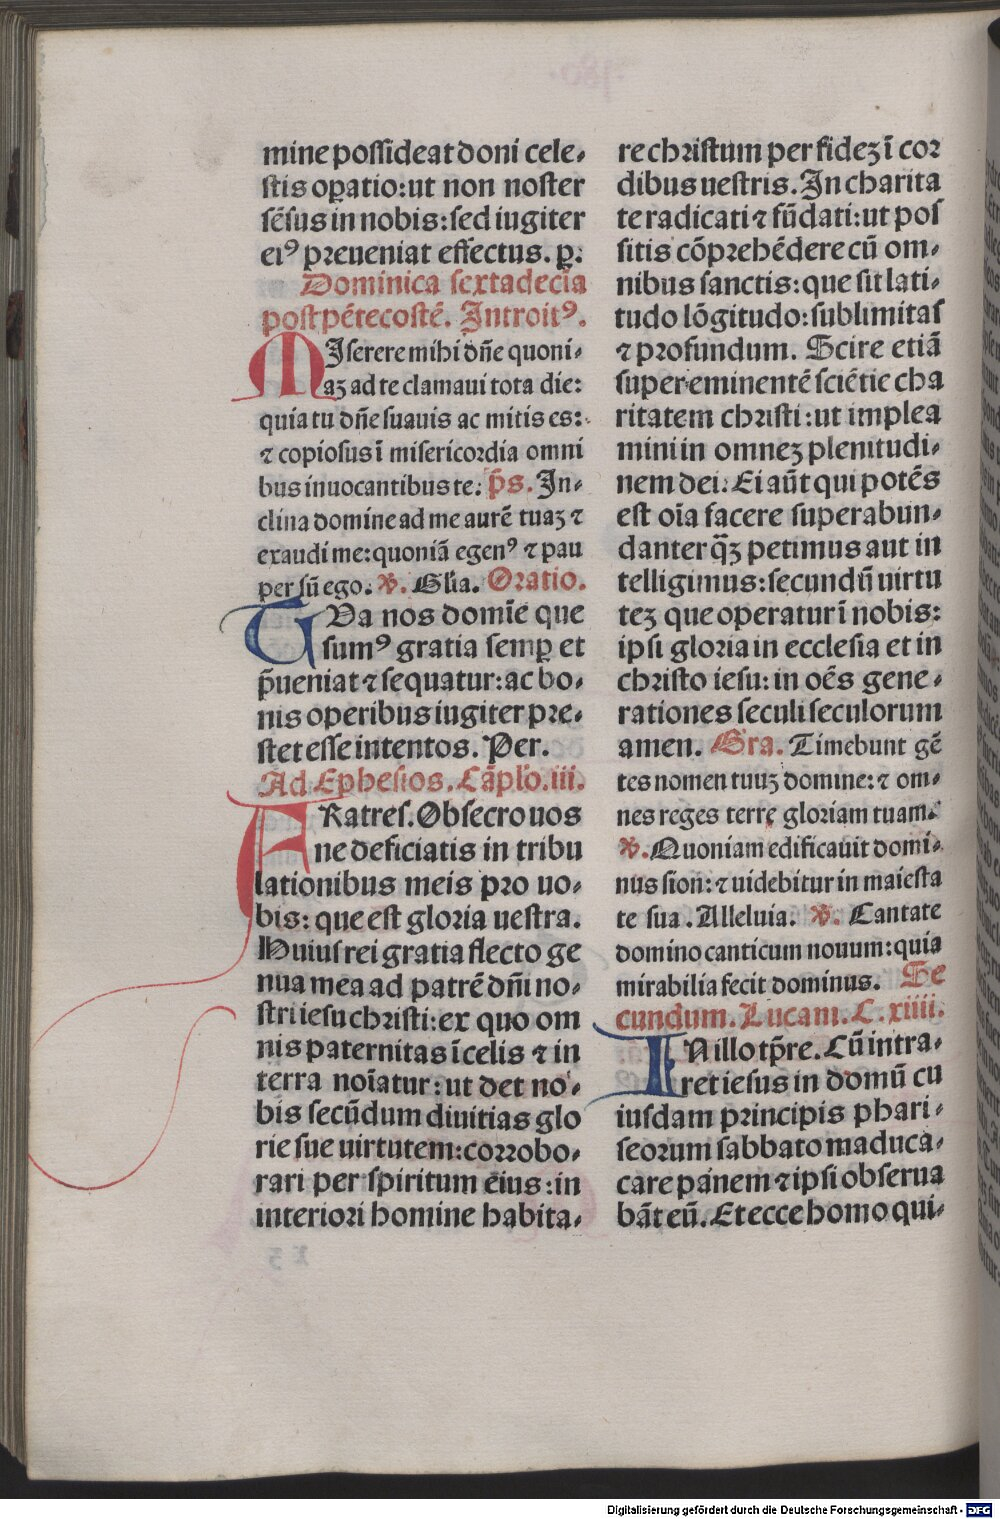 mine possideat doni cele-
stis op̲atio: ut non noster
sēsus in nobis: sed iugiter
eiꝰ preueniat effectus. p̲.
Dominica sextadecīa
post pētecostē. Introitꝰ.
MIserere mihi dn̄e quoni-
aꝫ ad te clamaui tota die:
quia tu dn̄e suauis ac mitis es:
⁊ copiosus ī misericordia omni
bus inuocantibus te. p̄s. In-
clina domine ad me aurē tuaꝫ ⁊
exaudi me: quoniā egenꝰ ⁊ pau
per sū ego. ℣. Gl̄ia. Oratio.
TVa nos domīe que
sumꝰ gratia semp̲ et
p̄ueniat ⁊ sequatur: ac bo-
nis operibus iugiter pre-
stet esse intentos. Per.
Ad Ephesios. Cāplo. iii.
FRatres. Obsecro uos
ne deficiatis in tribu
lationibus meis pro uo-
bis: que est gloria uestra.
Huius rei gratia flecto ge
nua mea ad patrē dn̄i no-
stri iesu christi: ex quo om
nis paternitas ī celis ⁊ in
terra noīatur: ut det no-
bis secūdum diuitias glo
rie sue uirtutem: corrobo-
rari per spiritum eius: in
interiori homine habita-
re christum per fideꝫ ī cor
dibus uestris. In charita
te radicati ⁊ fūdati: ut pos
sitis cōprehēdere cū om-
nibus sanctis: que sit lati-
tudo lōgitudo: sublimitas
⁊ profundum. Scire etiā
supereminentē sciētie cha
ritatem christi: ut implea
mini in omneꝫ plenitudi-
nem dei. Ei aūt qui potēs
est oīa facere superabun-
danter q̄ꝫ petimus aut in
telligimus: secundū uirtu
teꝫ que operatur ī nobis:
ipsi gloria in ecclesia et in
christo iesu: in oēs gene-
rationes seculi seculorum
amen. Gra. Timebunt gē
tes nomen tuuꝫ domine: ⁊ om-
nes reges terre gloriam tuam.
℣. Quoniam edificauit domi-
nus sion: ⁊ uidebitur in maiesta
te sua. Alleluia. ℣. Cantate
domino canticum nouum: quia
mirabilia fecit dominus. Se
cundum. Lucam. C. xiiii.
IN illo tp̄re. Cū intra-
ret iesus in domū cu
iusdam principis phari-
seorum sabbato māduca-
care panem ⁊ ipsi obserua
bāt eū. Et ecce homo qui-
Digitalisierung gefördert durch die Deutsche Forschungsgemeinschaft - DFG